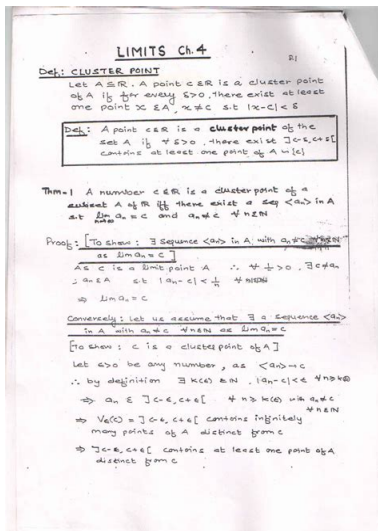 LIMITS Ch.4
Def: CLUSTER POINT
Let A⊆ℝ. A point c ε ℝ is a cluster point
of A if for every δ>0, there exist at least
one point x ε A, x≠c s.t |x-c|<δ
Def: A point c ε ℝ is a cluster point of the
set A if ∀ δ>0, there exist ]c-δ, c+δ[
contains at least one point of A \ {c}
Thm-1 A number c ε ℝ is a cluster point of a
subset A of ℝ iff there exist a seq <an> in A
s.t lim an = c and an≠c ∀ nεℕ
Proof: [To show: ∃ sequence <an> in A, with an≠c
as lim an = c]
As c is a limit point A ∴ ∀ 1/n >0, ∃ c≠an
; an ε A s.t |an-c| < 1/n ∀ nεℕ
⇒ lim an = c
Conversely: Let us assume that ∃ a sequence <an>
in A with an≠c ∀nεℕ as lim an=c
[To show: c is a cluster point of A]
Let ε>0 be any number, as <an>→c
∴ by definition ∃ k(ε) ε ℕ, |an-c|<ε ∀ n≥k(ε)
⇒ an ε ]c-ε, c+ε[ ∀ n≥k(ε) with an≠c
∀ nεℕ
⇒ Vε(c) = ]c-ε, c+ε[ contains infinitely
many points of A distinct from c
⇒ ]c-ε, c+ε[ contains at least one point of A
distinct from c